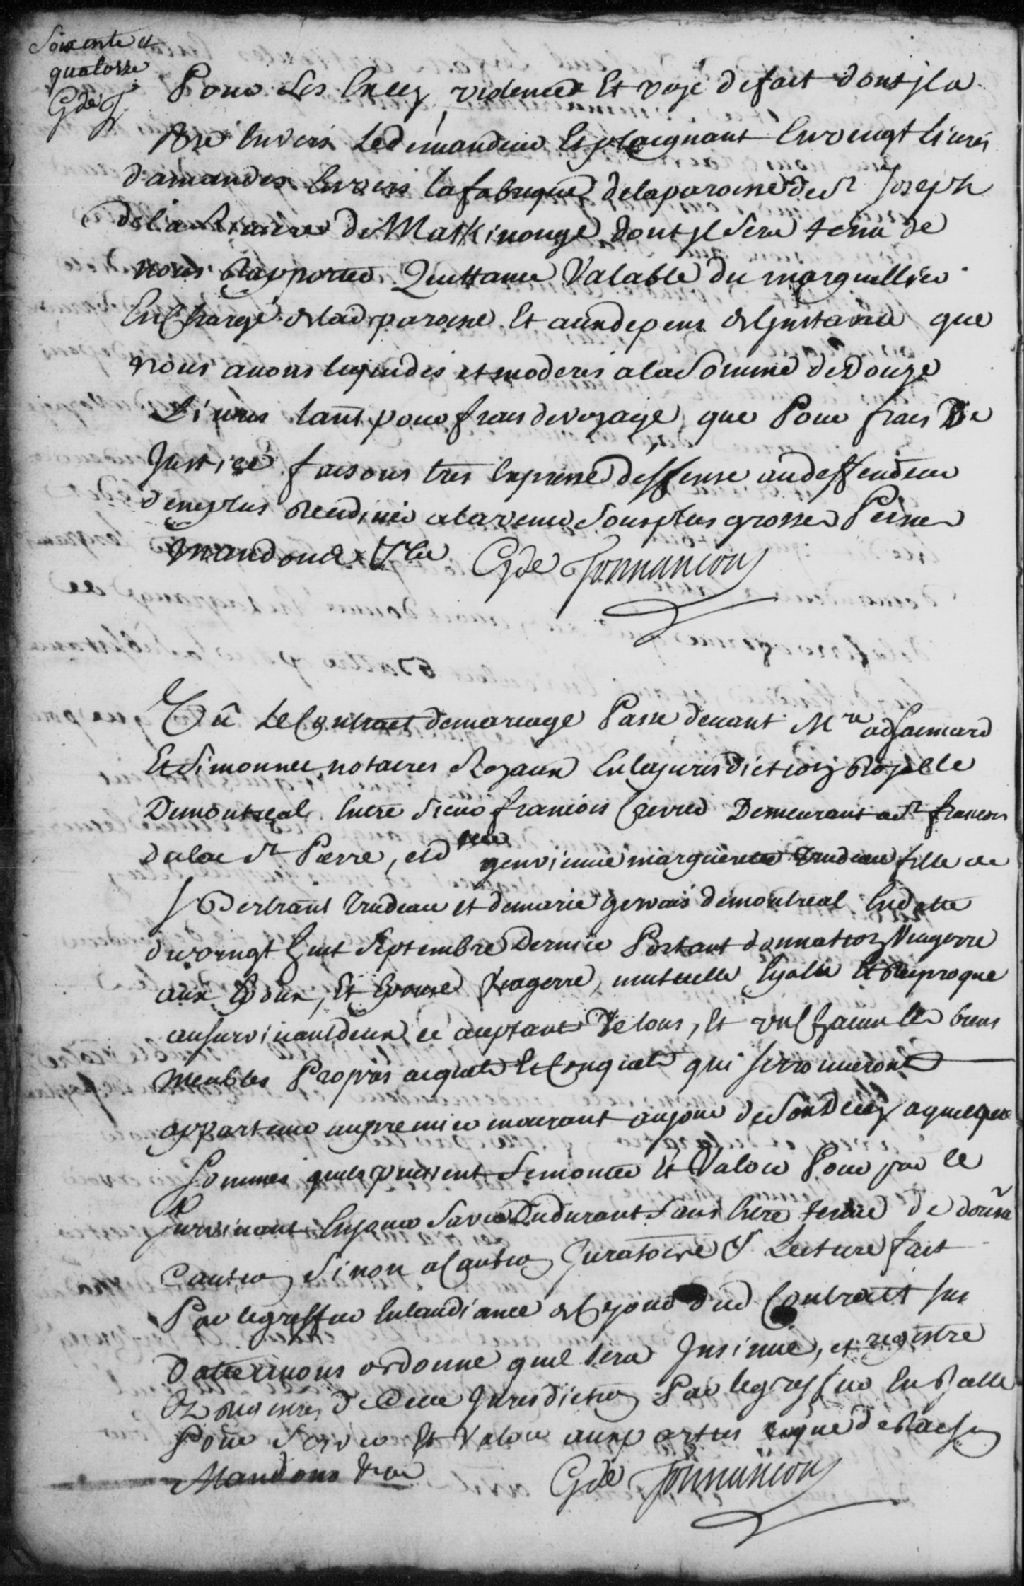 Soixente et
quatorze
Gde T
Pour Les Excez violence Et voye defait dont jl a
Usé Envers Ledemandeur Et plaignant Envingt livres
damandes Envers la fabrique delaparoisse de St Joseph
dela Riviere de Maskinongé dont jl Sera tenu de
nous Rapporter Quittance Valable du marguillier
En Charge deladparoisse Et auxdepens deljnstance que
nous avons liquidés et moderés alaSomme deDouze
Livres tant pour frais devoyage que Pour frais De
Justice faisons tres Expresse deffense audeffendeur
deneplus Recidiver alavenir Sousplus grosses Peines
Mandons &ca Gde Tonnancour
Vû Le Contract demariage Passé devant Mre adhemard
Et Simonnet notaires Royaux En lajurisdiction Royalle
Demontreal Entre Sieur francois Demeurant a St francois
dulac St Pierre, et d genevieve marguerite trudeau fille de
Bertrant trudeau et demarie gervais demontreal En datte
duvingt huit Septembre Dernier Portant donnation Viagerre
aux Epoux, Et Epouse Viagerre, mutuelle Egalle Et Reciproque
ausurvivant deux ce acceptant De tous, Et un Chacun les biens
meubles Propres acquets Et Conquets qui serrouveront
appartenir aupremier mourant aujour deSonDecez aquelque
Sommes quils puissent Semonter Et Valoir Pour par le
Survivant Enjouir Savie Durant Sans Estre tenue de donner
Caution Sinon aCaution Juratoire & Lecture fait
Par legreffier Enlaudiance deCejour dud Contract Sus
Datté avons ordonné quil sera Jnsinué, et registré
Ez Registres de Cette Jurisdiction Par legreffier En Icelle
Pour Servir Et Valoir auxparties Ceque deRaison
Mandons &ca Gde Tonnancour